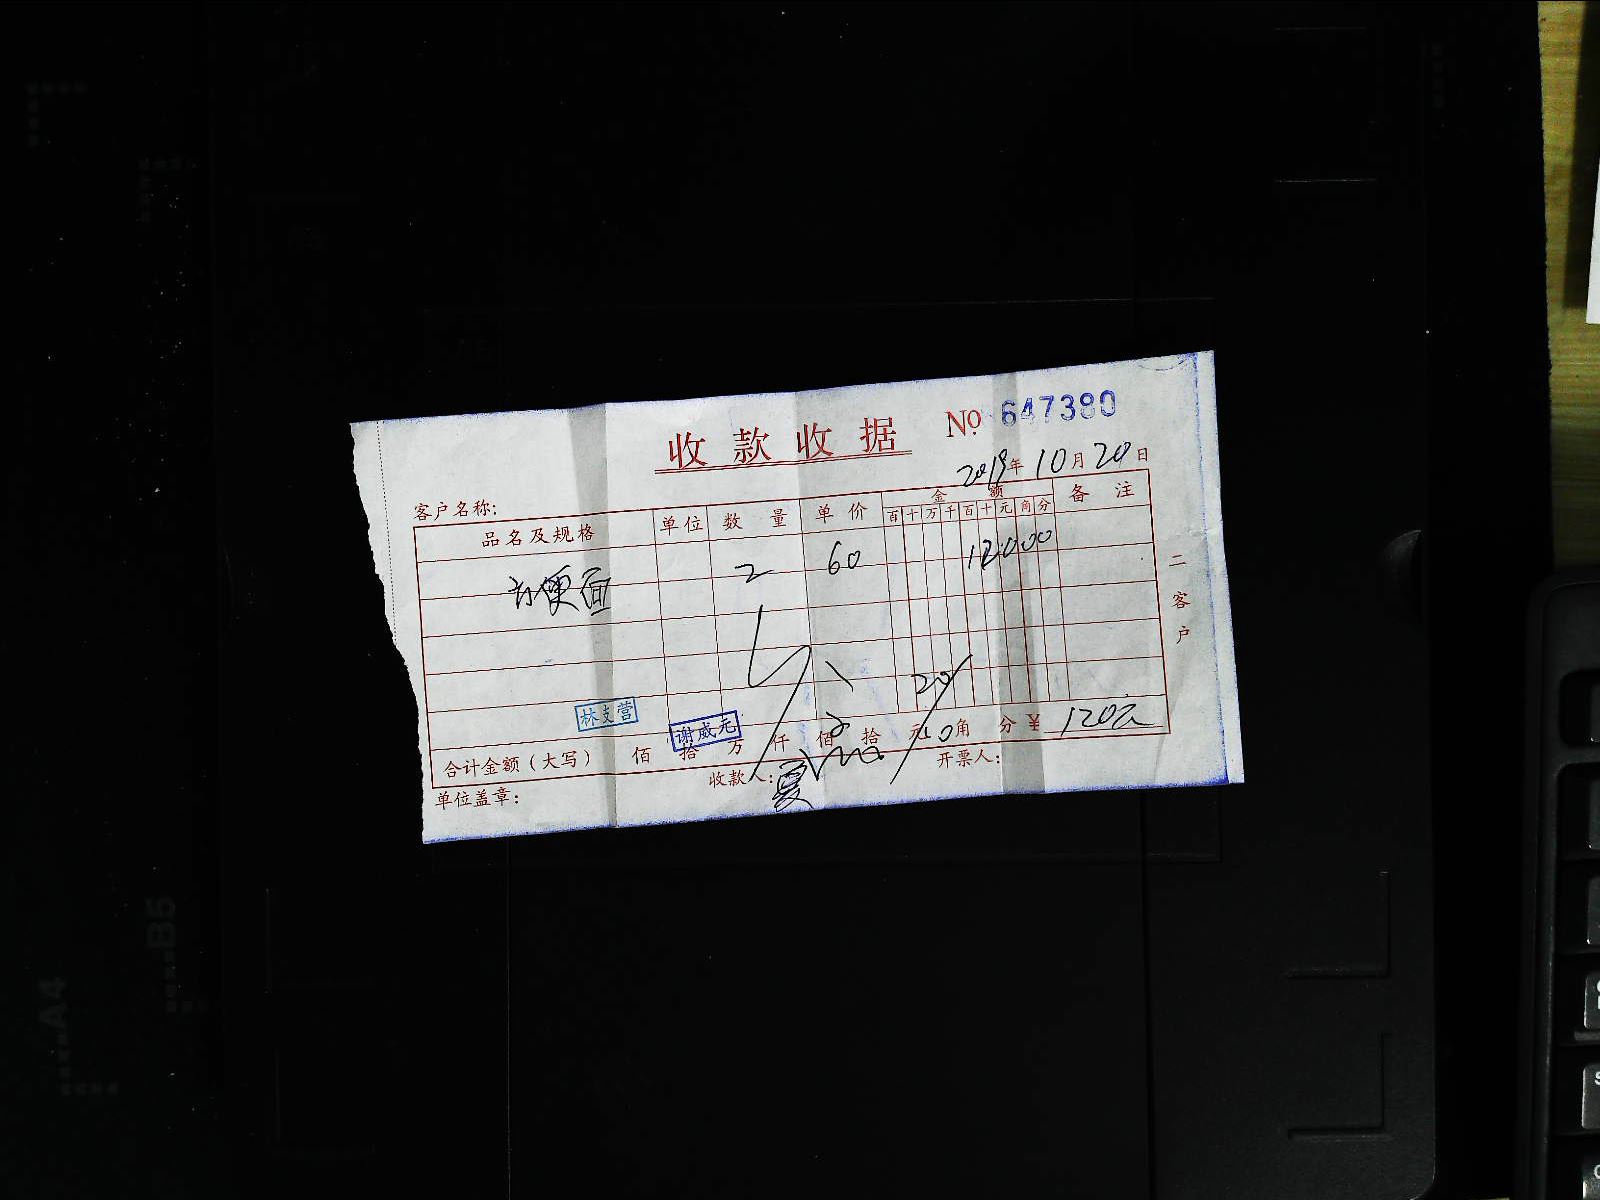 收款收据 № 647380
2019年10月20日
客户名称:
品名及规格 单位 数量 单价 金额 备注
百十万千百十元角分
方便面 2 60 12000
二客户
林支营
谢威元
合计金额(大写) 佰 拾 万 仟 佰 拾 元 0角 分 ¥ 120元
单位盖章: 收款人: 夏 开票人:
B5
A4